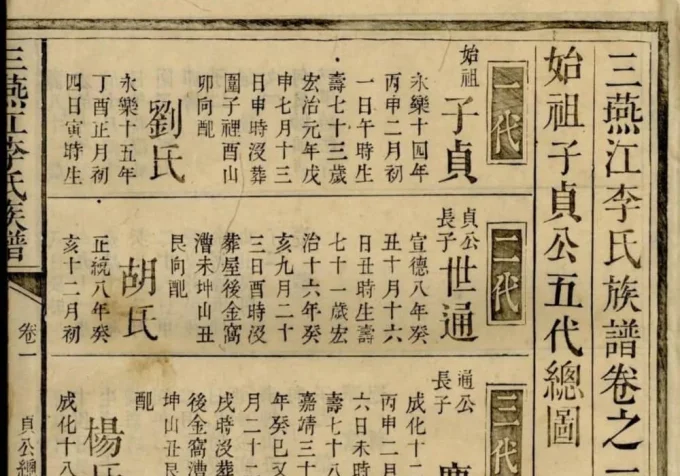 三燕江李氏族譜卷之
始祖子貞公五代總圖
一代
始祖
子貞
永樂十四年
丙申二月初
一日午時生
壽七十三歲
宏治元年戊
申七月十三
日申時沒葬
圍子裡酉山
卯向配
劉氏
永樂十五年
丁酉正月初
四日寅時生
二代
貞公
長子
世通
宣德八年癸
丑十月十六
日丑時生壽
七十一歲宏
治十六年癸
亥九月二十
三日酉時沒
葬屋後金窩
漕未坤山丑
艮向配
胡氏
正統八年癸
亥十二月初
三代
通公
長子
成化十二
丙申二月
六日未時
壽七十八
嘉靖三十
年癸又
月二十二
戌時沒葬
後金窩漕
坤山丑艮
配
楊氏
成化十八
三燕江李氏族譜
卷一
貞公總